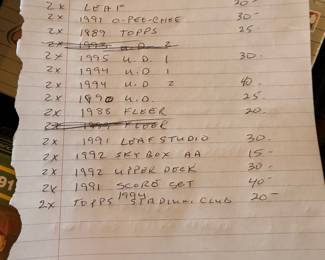 2x LEAF 20-
2x 1991 O-PEE-CHEE 30-
2x 1989 TOPPS 25
2x 1993 U.D. 2
2x 1995 U.D. 1 30-
2x 1994 U.D 1
2x 1994 U.D 2 40-
2x 1990 U.D. 25-
2x 1988 FLEER 20-
2x FLEER
2x 1991 LEAF STUDIO 30-
2x 1992 SKYBOX AA 15-
2x 1992 UPPER DECK 30-
2x 1991 SCORE SET 40-
2x TOPPS 1994 STADIUM CLUB 20-
91